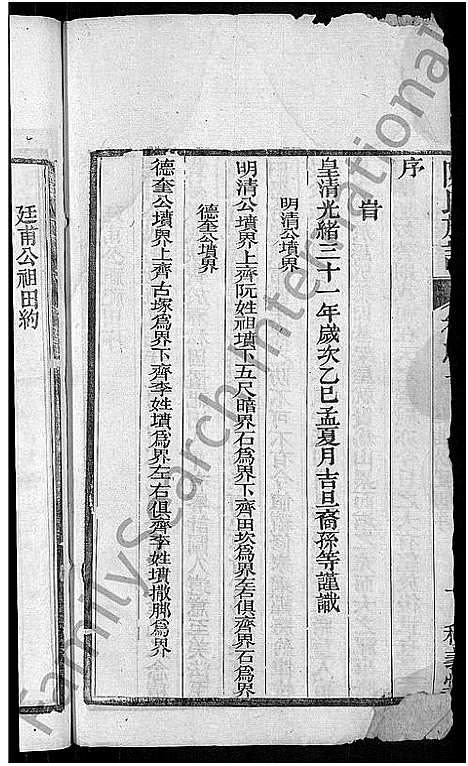 序
旹
皇清光緒三十一年歲次乙巳孟夏月吉旦裔孫等謹識
明清公墳界
明清公墳界上齊阮姓祖墳下五尺暗界石爲界下齊田坎爲界左右俱齊界石爲界
德奎公墳界
德奎公墳界上齊古塚爲界下齊李姓墳爲界左右俱齊李姓墳撒脚爲界
廷甫公祖田約
FamilySearch International